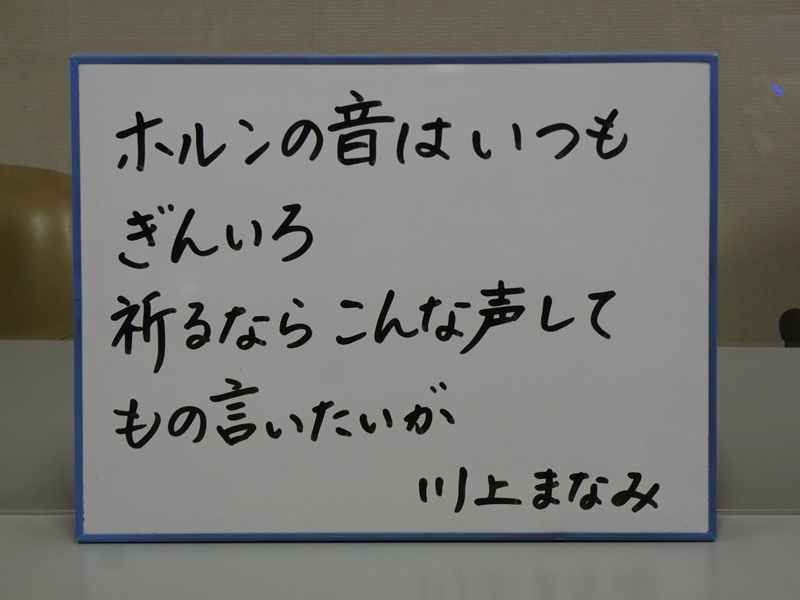 ホルンの音はいつも
ぎんいろ
祈るならこんな声して
もの言いたいが
川上まなみ